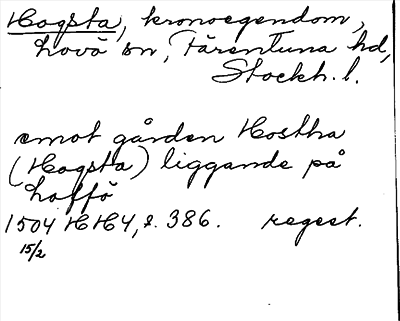 Hogsta, kronoegendom,
Lovö sn, Färentuna hd,
Stockh. l.
emot gården Hostha
(Hogsta) liggande på
Loffö
1504 HH4, s. 386. regest.
15/2